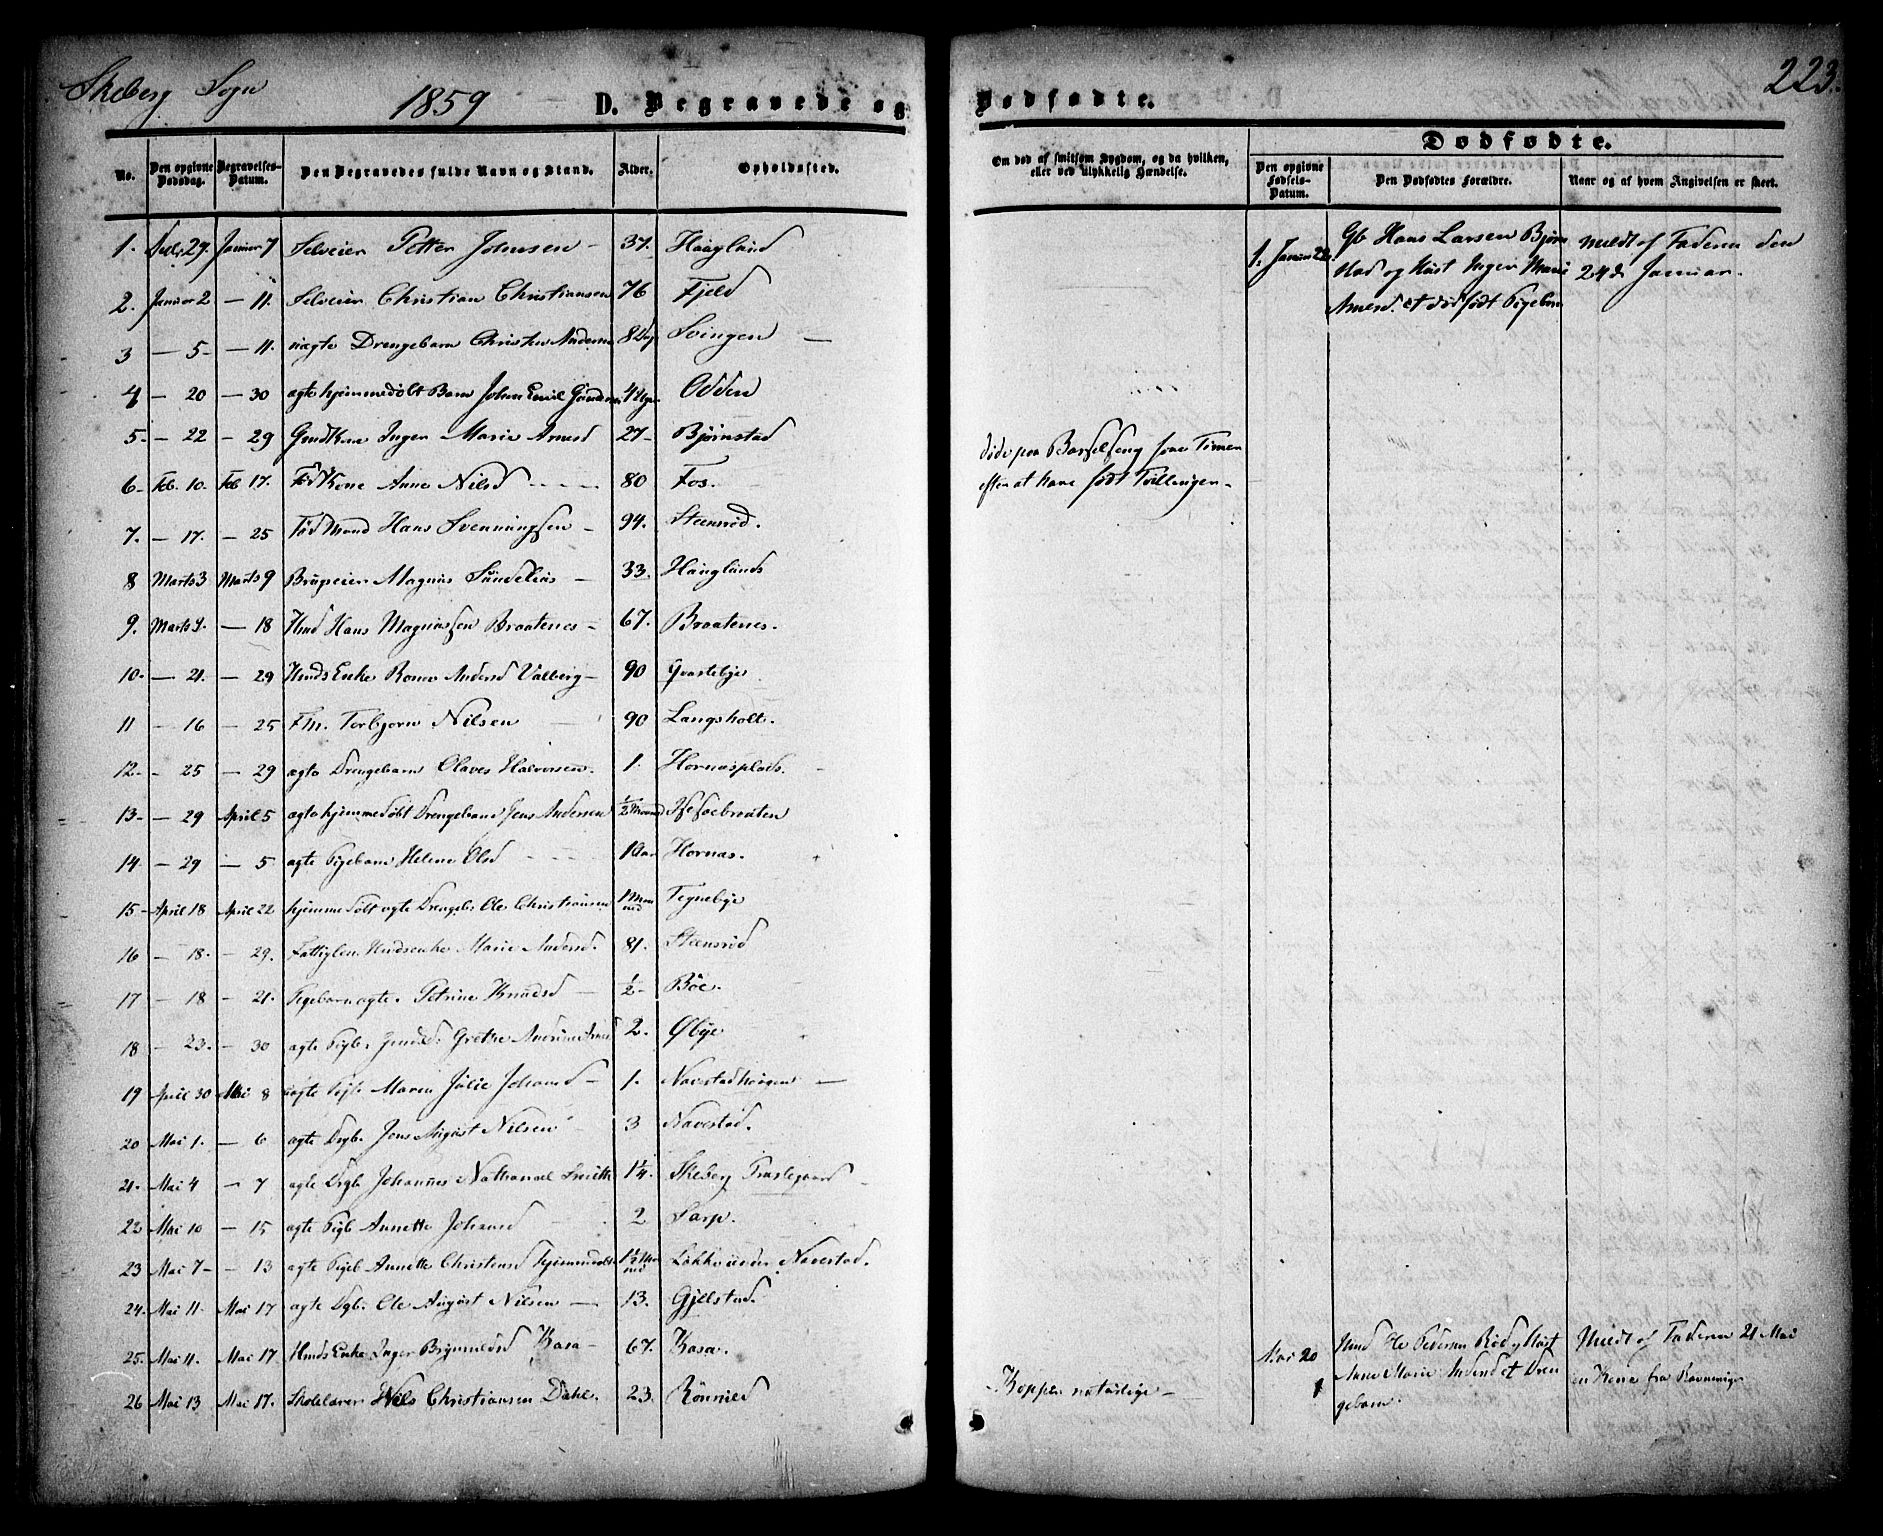 Skeberg Sogn 1859 D. Begravede og Dødfødte. 223.
No. Den opgivne Dødsdag. Begravelses-Datum. Den Begravedes fulde Navn og Stand. Alder. Opholdssted.
Om død af smitsom Sygdom, og da hvilken, eller ved ulykkelig Hændelse.
Dødfødte.
Den opgivne Fødsels-Datum. Den Dødfødtes Forældre. Naar og af hvem Angivelsen er skeet.
1. Decbr 29. Januar 7 Selveier Petter Johnsen – 37. Haugland
2. Januar 2 – 11. Selveier Christian Christiansen 76 Fjeld
3 – 5 – – 11. uægte Drengebarn Christen Anderss 8 Dag Svingen –
4 – 20 – 30 ægte hjemmedøbt Barn Johan Emil 4 Uger Odden
5 – – 22 – 29 Gmdkone Inger Marie Arnesd 27 – Bjørnstad
6 – Feb. 10. Feb 17. Fødkone Anne Nilsd 80 Fos.
7. – 17. – 25 FødMand Hans Svenningsen – 94. Steensrød.
8 Marts 3 Marts 9 Magnus – 33. Hauglands
9. Marts 9. – 18 Hmd Hans Magnussen Braatenes – 67. Braatenes.
10 – – 21. – 29 Hmds Enke Andersd Valberg – 90 Qvastebye
11 – 16 – 25 Fm. Torbjørn Nilsen – 90 Langsholt.
12. – 25 – 29 ægte Drengebarn Olaves Halvorsen. 1. Hornæsplads. –
13 – – 29 April 5 ægte hjemmedøbt Drengebarn Jens Andersen 1/2 Maaned
14 – 29 – 5 ægte Pigebarn Helene Olsd 1 Aar Hornæs.
15 – April 18 April 22 hjemmedøbt ægte Drengeb. Ole Christiansen 1 Maaned Tegnebye
16 – 18 – – 29. Fattiglem Hmdsenke Marie Andersd. 81. Steensrød
17 – 18 – 21. Pigebarn ægte. Petrine Knudsd – 1/2 – Böe.
18 – 23. – 30 ægte Pigb. Grethe 2. Øbye
19 April 30 Mai 8 uægte Pigb Maren Julie Johansd – 1. Navestadhougen –
20 Mai 1. – 6 ægte Drgb. Jens August Nilsen 3 Navestad.
21. Mai 4 – 7 ægte Drgb Johannes Nathanael Smith 1 1/4. Skeberg Præstegaard
22 Mai 10 – 15 ægte Pigb Annette Johansd 2 Sarp.
23 Mai 7 – – 13 ægte Pigeb Annette Christensd hjemmedøbt 1 1/2 Maaned Løkke under Navestad.
24. Mai 11. Mai 17 ægte Dgb. Ole August Nilsen – 13. Gjellstad.
25. Mai 11. Mai 17 Hmds Enke Inger Brynnildsd Kasa – 67. Kasa.
26 Mai 13 Mai 17. Skolelærer Nils Christiansen Dahl. 23. Rönnild
døde paa Barselseng faae Timer
efter at have født Tvillinger –
– Kopper naturlige –
1. Januar 22. Gb Hans Larsen Bjørn
stad og Kūst Inger Marie
Arnesd. et dødfødt Pigebarn
Meldt af Faderen den
24de Januar.
Mai 20 Hmd Ole Pedersen Röd og Kūst
Anne Marie Andersd et Dren
gebarn.
Meldt af Faderen 21 Mai